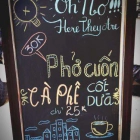 Oh No!!!
Here They Are
30K
Phở cuốn
CÀ PHÊ CỐT DỪA
chỉ 25K